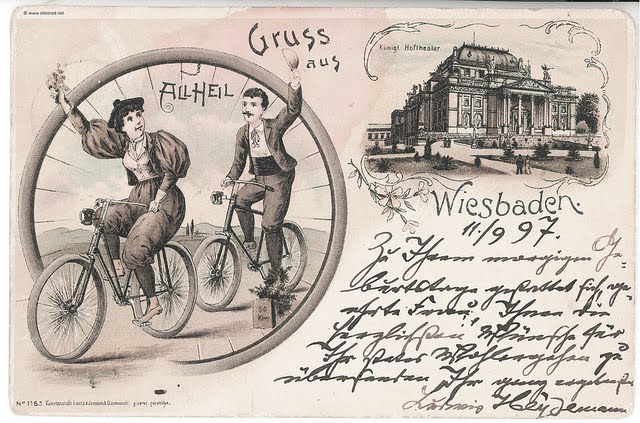 © www.oldbread.net
Gruss
aus
All Heil
Königl. Hoftheater
Wiesbaden.
11./9 97.
Zu Ihrem morgigen Ge-
burtstage gestattet sich, ge-
ehrte Frau, Ihnen die
herzlichsten Wünsche für
Ihr stetes Wohlergehen zu
übersenden Ihr ganz ergebenster
Ludwig Heydemann
No 1165